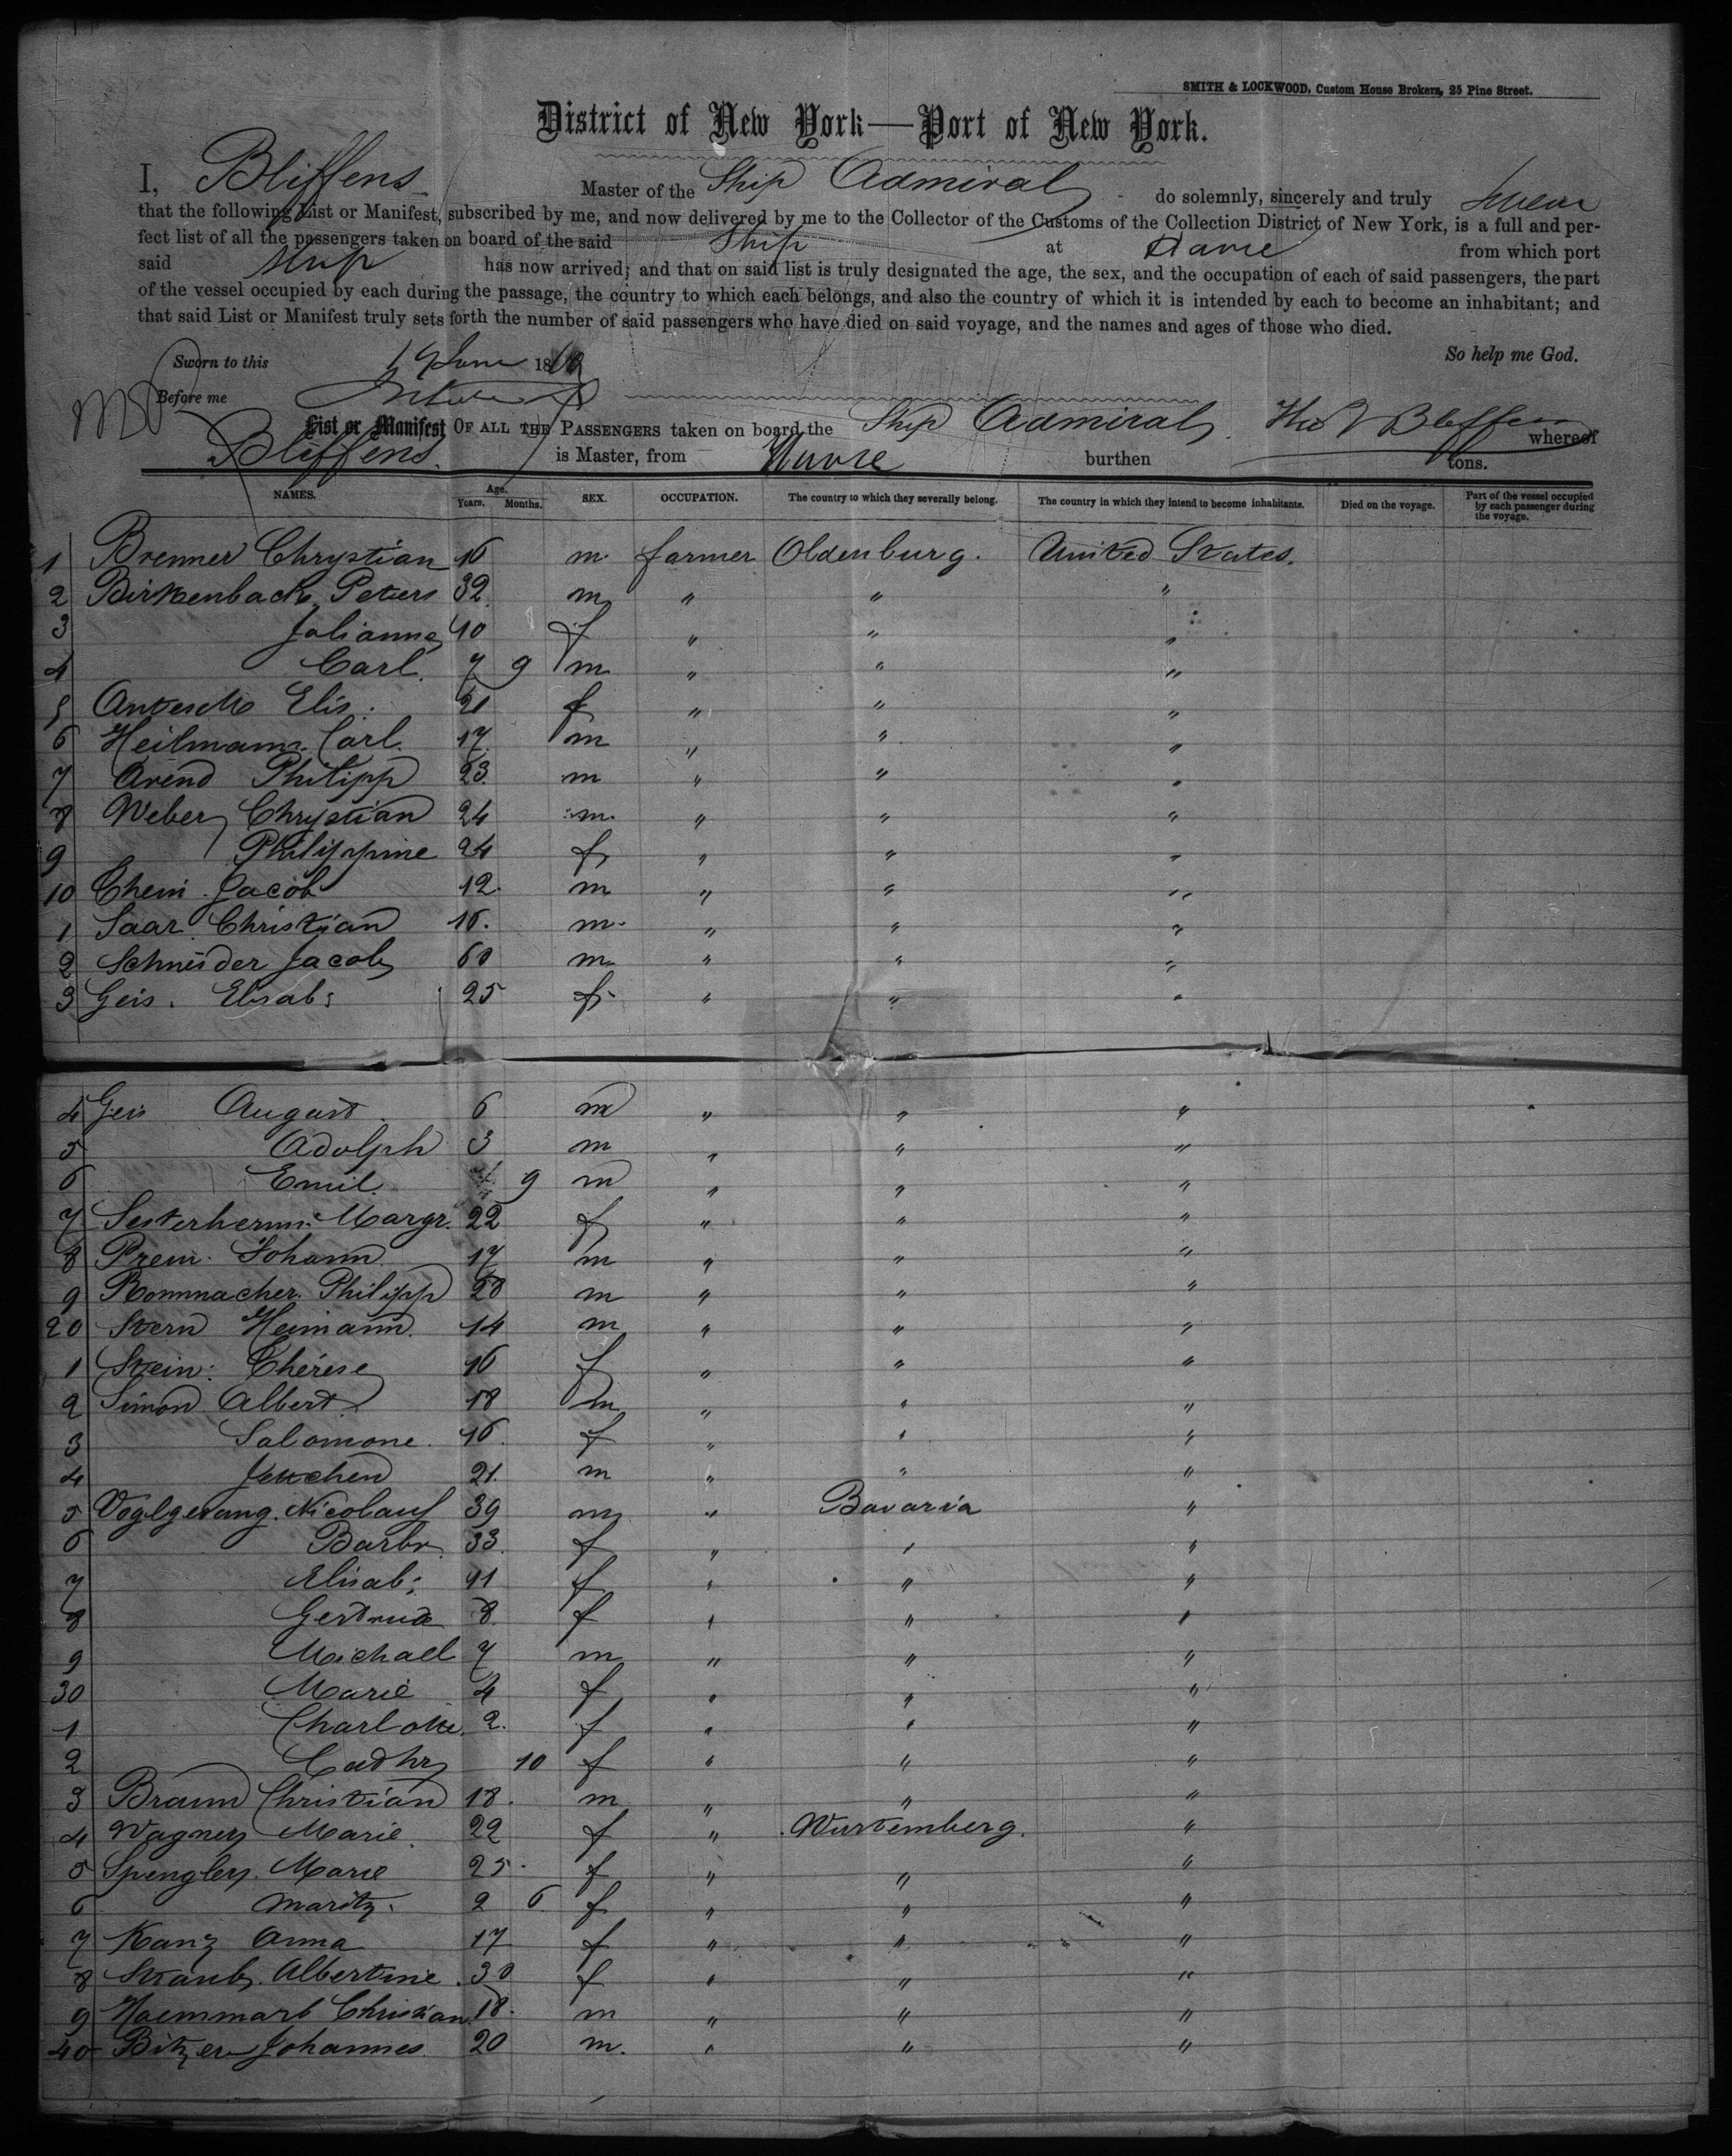 SMITH & LOCKWOOD, Custom House Brokers, 25 Pine Street.
District of New York—Port of New York.
I, Bliffens Master of the Ship Admiral do solemnly, sincerely and truly swear
that the following List or Manifest, subscribed by me, and now delivered by me to the Collector of the Customs of the Collection District of New York, is a full and per-
fect list of all the passengers taken on board of the said Ship at Havre from which port
said Ship has now arrived; and that on said list is truly designated the age, the sex, and the occupation of each of said passengers, the part
of the vessel occupied by each during the passage, the country to which each belongs, and also the country of which it is intended by each to become an inhabitant; and
that said List or Manifest truly sets forth the number of said passengers who have died on said voyage, and the names and ages of those who died.
So help me God.
Sworn to this 19 June 18
Before me
List or Manifest OF ALL THE PASSENGERS taken on board the Ship Admiral whereof
Bliffens. is Master, from Havre burthen tons.
NAMES. Age. Years. Months. SEX. OCCUPATION. The country to which they severally belong. The country in which they intend to become inhabitants. Died on the voyage. Part of the vessel occupied by each passenger during the voyage.
1 Brenner Chrystian 16 m. farmer Oldenburg. United States.
2 Birkenbach Peters 32. m " " "
3 Julianne 40 f " " "
4 Carl. 7 9 m " " "
5 Elis. 21 f " " "
6 Heilmann Carl. 17. m " " "
7 Arend Philipp 23. m " " "
8 Weber Chrystian 24 m. " " "
9 Philippine 24 f " " "
10 Jacob 12. m " " "
1 Saar Christian 16. m. " " "
2 Schneider Jacob 60 m. " " "
3 Geis. Elisab: 25 f. " " "
4 Geis August 6 m " " "
5 Adolph 3 m " " "
6 Emil. 9 m " " "
7 Margr. 22 f " " "
8 Prem. Johann. 17 m " " "
9 Rommacher Philipp 28 m " " "
20 Stern Heimann. 14 m " " "
1 Stein: Thérèse 16 f " " "
2 Simon Albert. 18 m " " "
3 Salomone. 16. f " " "
4 Jettchen 21. m " " "
5 Voglgesang. Nicolaus 39 m " Bavaria "
6 Barbr. 33. f " " "
7 Elisab: 11 f " " "
8 Gertrude 8. f " " "
9 Michael 7 m " " "
30 Marie 4 f " " "
1 Charlotte. 2. f " " "
2 Cathr 10 f " " "
3 Braun Christian 18. m " " "
4 Wagner Marie. 22 f " Wurtemberg. "
5 Spengler. Marie 25. f " " "
6 Moritz. 2 6 f " " "
7 Kanz Anna 17 f " " "
8 Straub. Albertine. 30 f " " "
9 Christian 18. m " " "
40 Bitzer Johannes. 20 m. " " "